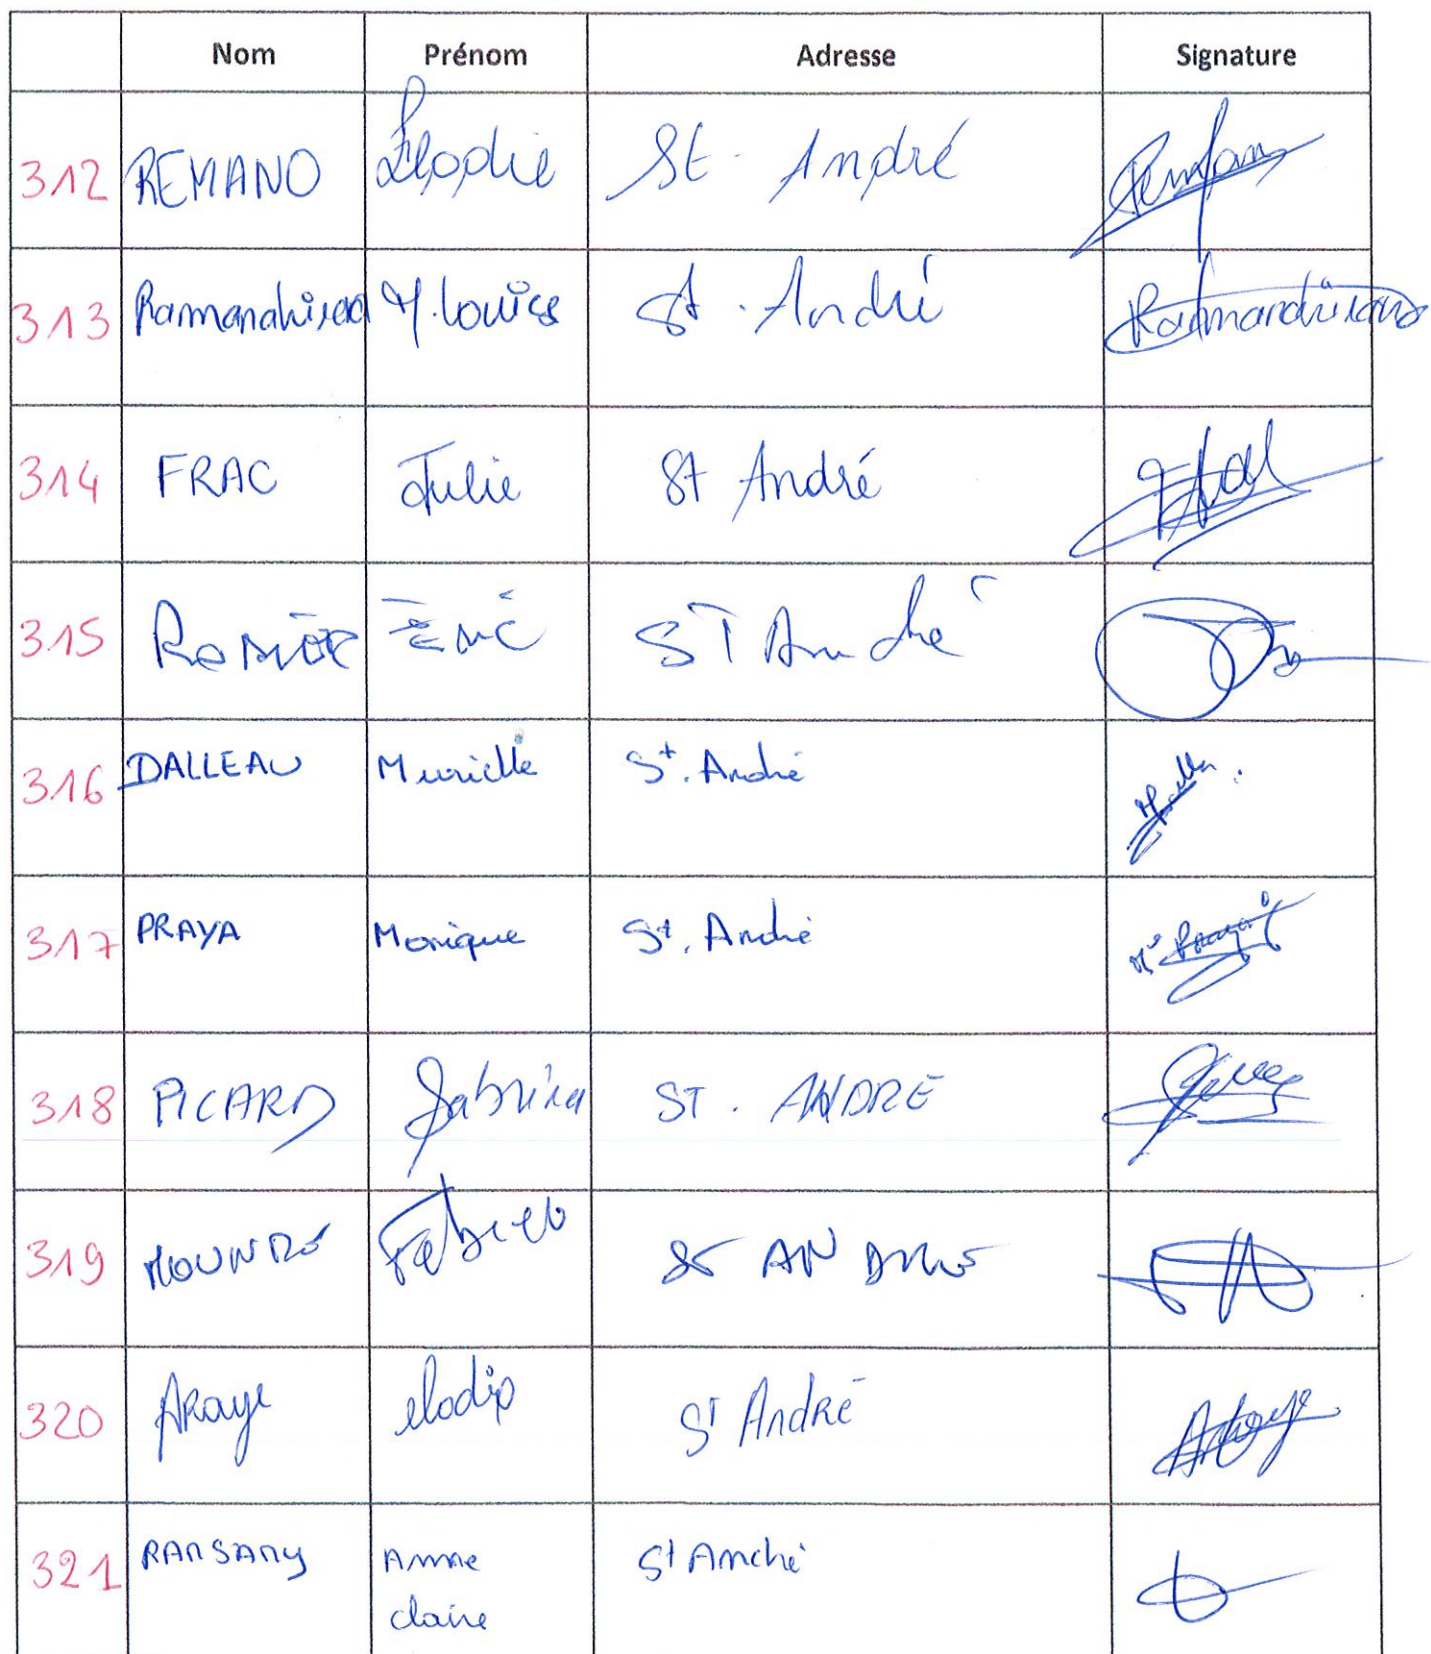 Nom Prénom Adresse Signature
312 REMANO Elodie St. André
313 M. Louise St. André Ramandhirana
314 FRAC Julie St André
315 ST André
316 DALLEAU Murielle St. André
317 PRAYA Monique St. André
318 PICARD Sabrina ST. ANDRE
319 St ANDRé
320 ARaye elodie St AndRé
321 RAMSAMY Anne St André
claire